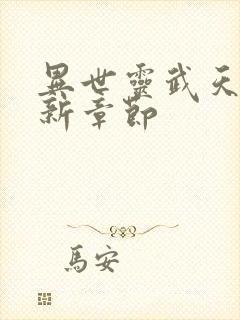 異世靈武天
新章節
馬安